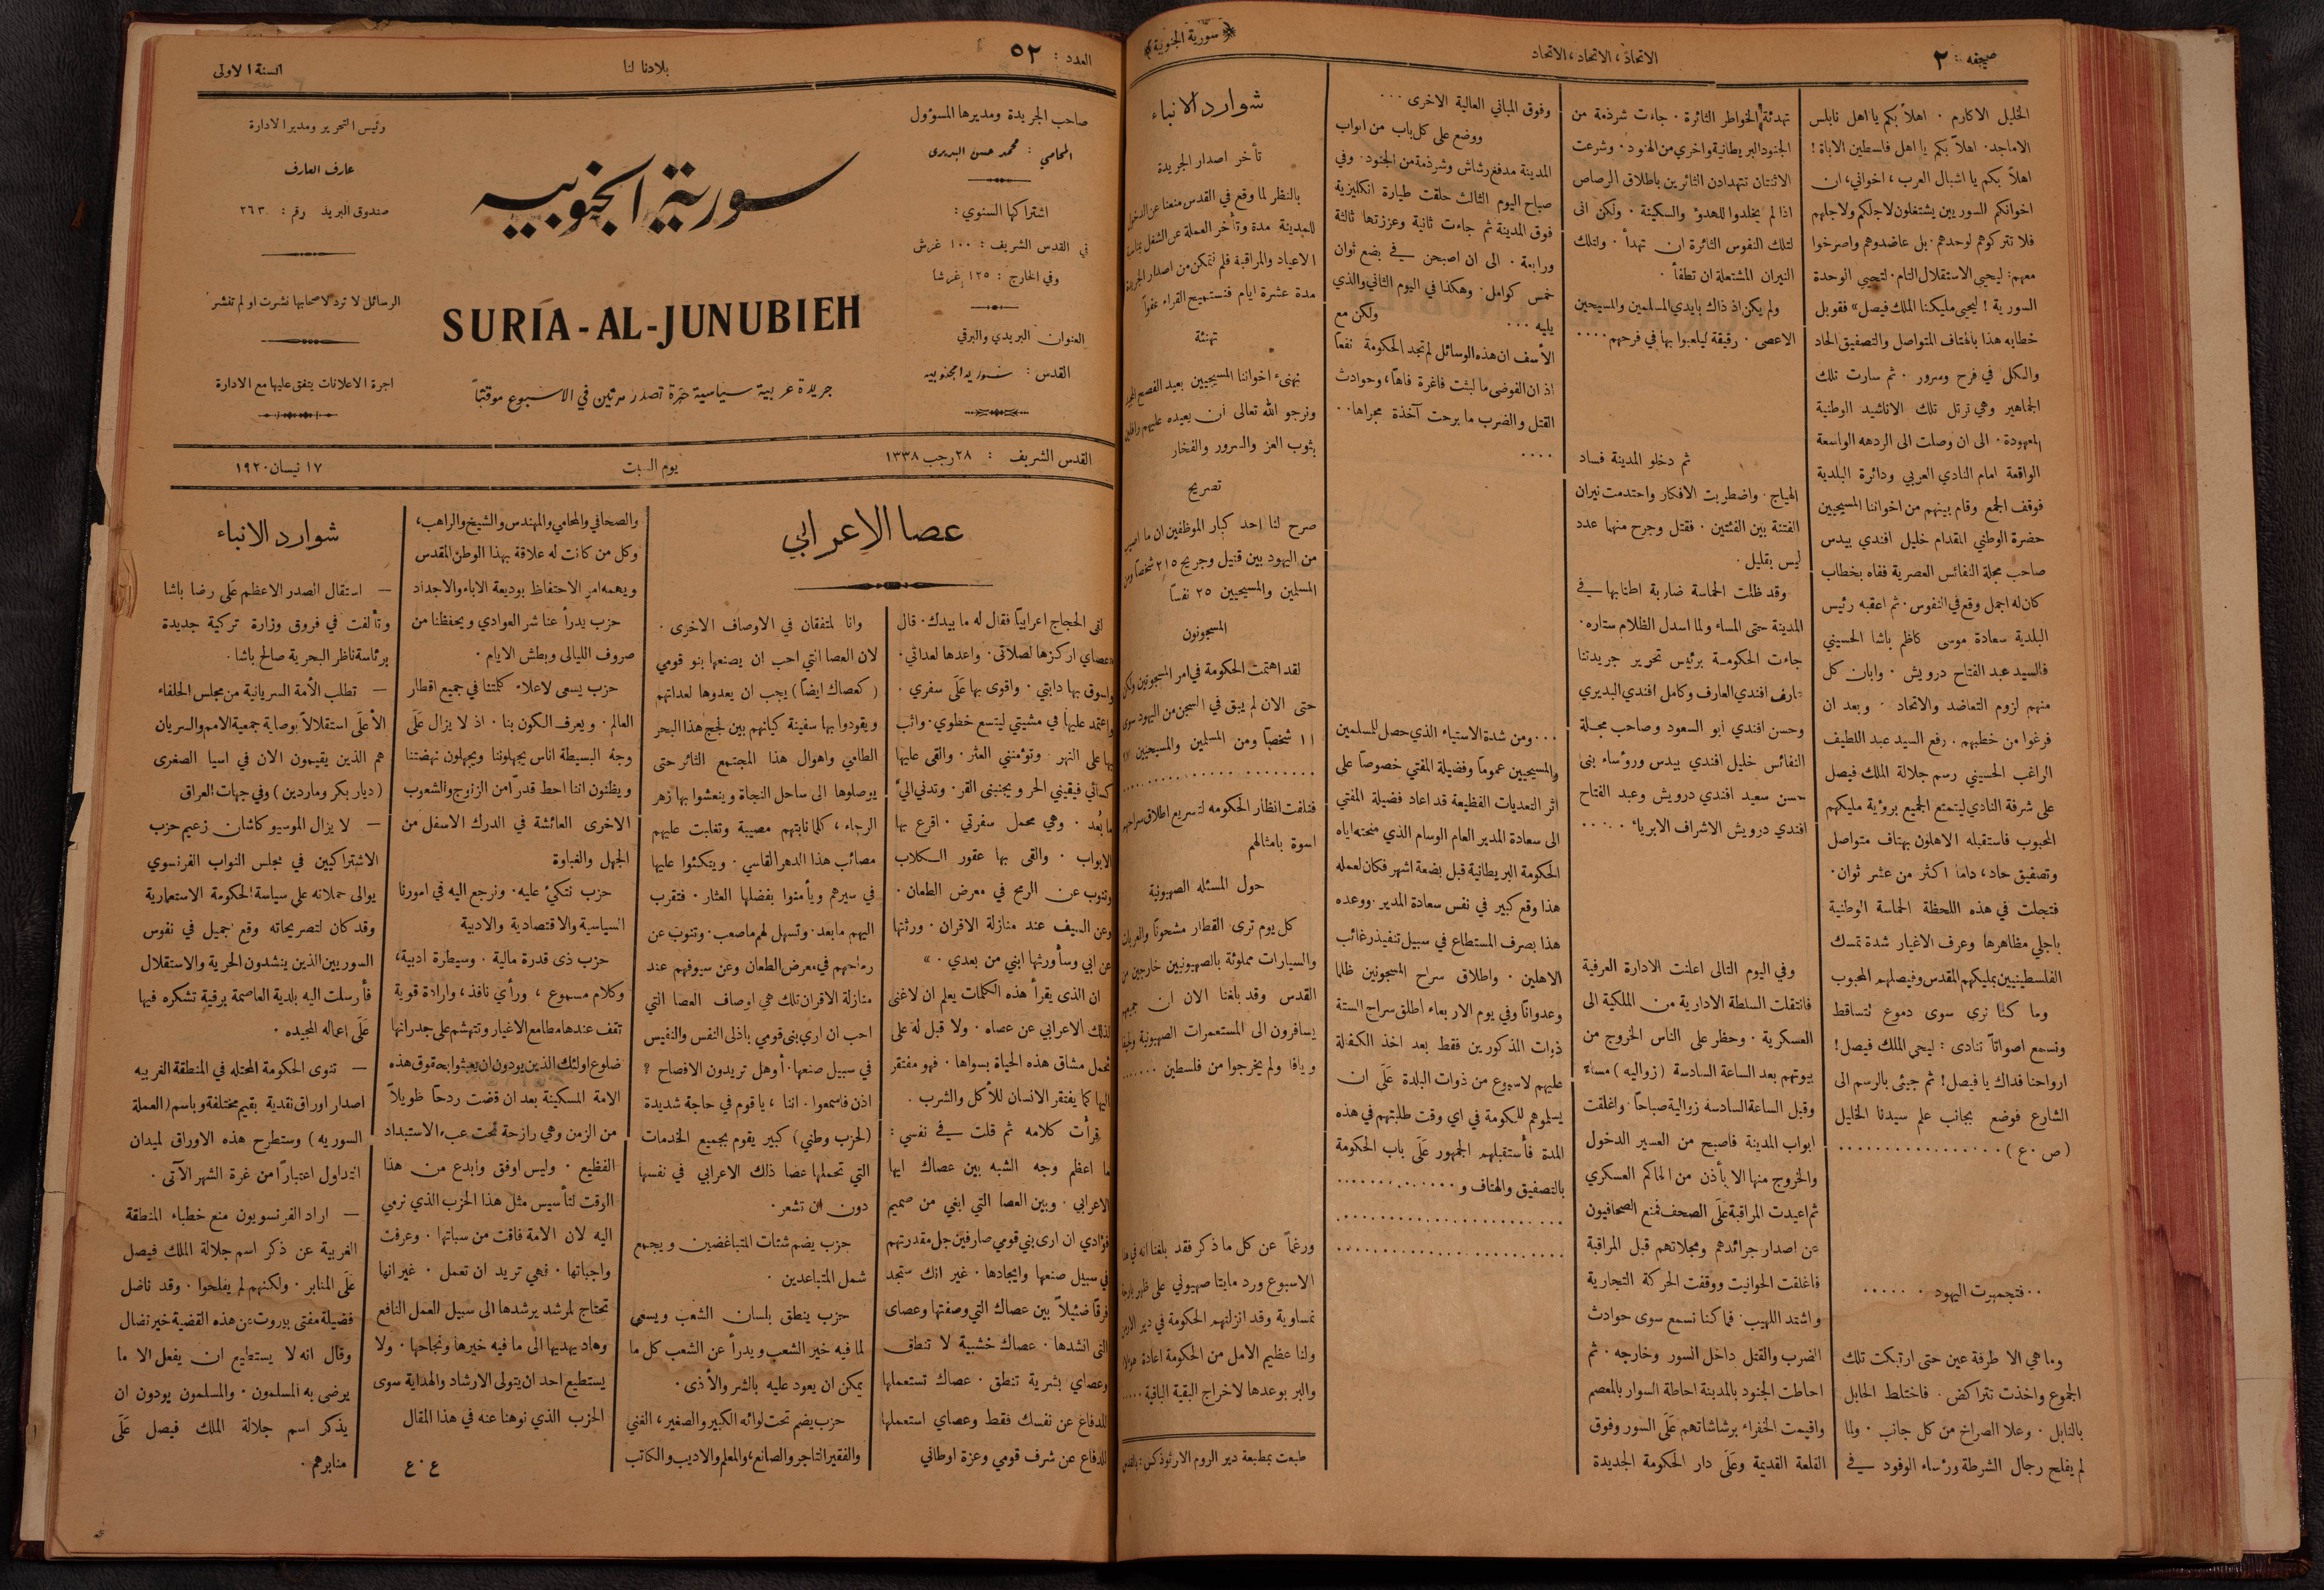 العدد : ٥٢
بلادنا لنا
السنة الاولى
صاحب الجريدة ومديرها المسؤول
المحامي : محمد حسن البديري
اشتراكها السنوي :
في القدس الشريف : ١٠٠ غرش
وفي الخارج : ١٢٥ غرشا
العنوان البريدي والبرقي
القدس : سورية الجنوبية
سورية الجنوبية
SURIA-AL-JUNUBIEH
جريدة عربية سياسية حرة تصدر مرتين في الاسبوع موقتاً
رئيس التحرير ومدير الادارة
عارف العارف
صندوق البريد رقم : ٢٦٣
الرسائل لا ترد لاصحابها نشرت او لم تنشر
اجرة الاعلانات يتفق عليها مع الادارة
القدس الشريف : ٢٨ رجب ١٣٣٨
يوم السبت
١٧ نيسان ١٩٢٠
عصا الاعرابي
لقي الحجاج اعرابياً فقال له ما بيدك . قال
عصاي اركزها لصلاتي . واعدها لعداتي .
واسوق بها دابتي . واقوى بها عَلَى سفري .
واعتمد عليها في مشيتي ليتسع خطوي . واثب
بها على النهر . وتؤمنني العثر . والقي عليها
كسائي فيقيني الحر ويجنبني القر . وتدني اليَّ
ما بعُد . وهي محمل سفرتي . اقرع بها
الابواب . والقى بها عقور الكلاب
وتنوب عن الرمح في معرض الطعان .
وعن السيف عند منازلة الاقران . ورثتها
عن ابي وسأورثها ابني من بعدي . »
ان الذى يقرأ هذه الكلمات يعلم ان لاغنى
لذلك الاعرابي عن عصاه . ولا قبل له على
تحمل مشاق هذه الحياة بسواها . فهو مفتقر
اليها كما يفتقر الانسان للأكل والشرب .
قرأت كلامه ثم قلت في نفسي :
ما اعظم وجه الشبه بين عصاك ايها
الاعرابي . وبين العصا التي ابغي من صميم
فؤادي ان ارى بني قومي صارفين جل مقدرتهم
في سبيل صنعها وايجادها . غير انك ستجد
فرقاً ضئيلاً بين عصاك التي وصفتها وعصاى
التى انشدها . عصاك خشبية لا تنطق
وعصاي بشرية تنطق . عصاك تستعملها
للدفاع عن نفسك فقط وعصاي استعملها
للدفاع عن شرف قومي وعزة اوطاني
وانا لمتفقان في الاوصاف الاخرى .
لان العصا انتي احب ان يصنعها بنو قومي
( كعصاك ايضاً ) يجب ان يعدوها لعداتهم
ويقودوا بها سفينة كيانهم بين لجج هذا البحر
الطامي واهوال هذا المجتمع الثائر حتى
يوصلوها الى ساحل النجاة وينعشوا بها زهر
الرجاء ، كلما نابتهم مصيبة وتغلبت عليهم
مصائب هذا الدهر القاسي . ويتكئوا عليها
في سيرهم ويأمنوا بفضلها العثار . فتقرب
اليهم ما بعد . وتسهل لهم ماصعب . وتنوب عن
رماحهم في معرض الطعان وعن سيوفهم عند
منازلة الاقران تلك هي اوصاف العصا التي
احب ان ارى بني قومي باذلى النفس والنفيس
في سبيل صنعها . أوهل تريدون الافصاح ؟
اذن فاسمعوا . اننا ، يا قوم في حاجة شديدة
( لحزب وطني ) كبير يقوم بجميع الخدمات
التي تحملها عصا ذلك الاعرابي في نفسها
دون ان تشعر .
حزب يضم شتات المتباغضين ويجمع
شمل المتباعدين .
حزب ينطق بلسان الشعب ويسعى
لما فيه خير الشعب ويدرأ عن الشعب كل ما
يمكن ان يعود عليه بالشر والأذى .
حزب يضم تحت لوائه الكبير والصغير ، الغني
والفقير التاجر والصانع ، والمعلم والاديب والكاتب
والصحافي والمحامي والمهندس والشيخ والراهب ،
وكل من كانت له علاقة بهذا الوطن المقدس
ويهمه امر الاحتفاظ بوديعة الاباء والاجداد
حزب يدرأ عنا شر العوادي ويحفظنا من
صروف الليالى وبطش الايام .
حزب يسعى لاعلاء كلمتنا في جميع اقطار
العالم . ويعرف الكون بنا . اذ لا يزال عَلَى
وجه البسيطة اناس يجهلوننا ويجهلون نهضتنا
ويظنون اننا احط قدراً من الزنوج والشعوب
الاخرى العائشة في الدرك الاسفل من
الجهل والغباوة
حزب نتكئ عليه . ونرجع اليه في امورنا
السياسية والاقتصادية والادبية
حزب ذى قدرة مالية . وسيطرة ادبية ،
وكلام مسموع ، ورأي نافذ ، وارادة قوية
تقف عندها مطامع الاغيار وتتهشم على جدرانها
ضلوع اولئك الذين يودون ان يعبثوا بحقوق هذه
الامة المسكينة بعد ان قضت ردحاً طويلاً
من الزمن وهي رازحة تحت عبء الاستبداد
الفظيع . وليس اوفق وابدع من هذا
الوقت لتأسيس مثل هذا الحزب الذي نرمي
اليه لان الامة فاقت من سباتها . وعرفت
واجباتها . فهي تريد ان تعمل . غير انها
تحتاج لمرشد يرشدها الى سبيل العمل النافع
وهاد يهديها الى ما فيه خيرها ونجاحها . ولا
يستطيع احد ان يتولى الارشاد والهداية سوى
الحزب الذي نوهنا عنه في هذا المقال
ع . ع
شوارد الانباء
— استقال الصدر الاعظم عَلي رضا باشا
وتألفت في فروق وزارة تركية جديدة
برئاسة ناظر البحرية صالح باشا .
— تطلب الأمة السريانية من مجلس الحلفاء
الأعلَى استقلالاً بوصاية جمعية الامم والسريان
هم الذين يقيمون الان في اسيا الصغرى
( ديار بكر وماردين ) وفي جهات العراق
— لا يزال الموسيو كاشان زعيم حزب
الاشتراكيين في مجلس النواب الفرنسوي
يوالى حملاته على سياسة الحكومة الاستعمارية
وقد كان لتصريحاته وقع جميل في نفوس
السوريين الذين ينشدون الحرية والاستقلال
فأرسلت اليه بلدية العاصمة برقية تشكره فيها
عَلَى اعماله المجيده .
— تنوى الحكومة المحتله في المنطقة الغربيه
اصدار اوراق نقدية بقيم مختلفة وباسم ( العملة
السوريه ) وستطرح هذه الاوراق لميدان
التداول اعتباراً من غرة الشهر الآتى .
— اراد الفرنسويون منع خطباء المنطقة
الغربية عن ذكر اسم جلالة الملك فيصل
عَلَى المنابر . ولكنهم لم يفلحوا . وقد ناضل
فضيلة مفتى بيروت عن هذه القضية خير نضال
وقال انه لا يستطيع ان يفعل الا ما
يرضى به المسلمون . والمسلمون يودون ان
يذكر اسم جلالة الملك فيصل عَلَى
منابرهم .
صحيفه : ٢
الاتحاد ، الاتحاد ، الاتحاد
﴿ سورية الجنوبية ﴾
الخليل الاكارم . اهلاً بكم يا اهل نابلس
الاماجد . اهلاً بكم يا اهل فلسطين الاباة !
اهلاً بكم يا اشبال العرب ، اخواني ، ان
اخوانكم السوريين يشتغلون لاجلكم ولاجلهم
فلا تتركوهم لوحدهم . بل عاضدوهم واصرخوا
معهم : ليحيى الاستقلال التام . لتحيى الوحدة
السورية ! ليحيى مليكنا الملك فيصل » فقوبل
خطابه هذا بالهتاف المتواصل والتصفيق الحاد
والكل في فرح وسرور . ثم سارت تلك
الجماهير وهي ترتل تلك الاناشيد الوطنية
المعهودة . الى ان وصلت الى الردهه الواسعة
الواقعة امام النادي العربي ودائرة البلدية
فوقف الجمع وقام بينهم من اخواننا المسيحيين
حضرة الوطني المقدام خليل افندي بيدس
صاحب مجلة النفائس العصرية ففاه بخطاب
كان له اجمل وقع في النفوس . ثم اعقبه رئيس
البلدية سعادة موسى كاظم باشا الحسيني
فالسيد عبد الفتاح درويش . وابان كل
منهم لزوم التعاضد والاتحاد . وبعد ان
فرغوا من خطبهم . رفع السيد عبد اللطيف
الراغب الحسيني رسم جلالة الملك فيصل
على شرفة النادي ليتمتع الجميع برؤية مليكهم
المحبوب فاستقبله الاهلون بهتاف متواصل
وتصفيق حاد ، داما اكثر من عشر ثوان .
فتجلت في هذه اللحظة الحماسة الوطنية
باجلي مظاهرها وعرف الاغيار شدة تمسك
الفلسطينيين بمليكهم المقدس وفيصلهم المحبوب
وما كنا نرى سوى دموع تتساقط
ونسمع اصواتاً تنادى : ليحي الملك فيصل !
ارواحنا فداك يا فيصل ! ثم جيئى بالرسم الى
الشارع فوضع بجانب علم سيدنا الخليل
( ص . ع ) . . . . . . . . . . . . . . . .
. . فتجمهرت اليهود . . . . . .
وما هي الا طرفة عين حتى ارتبكت تلك
الجموع واخذت تتراكض . فاختلط الحابل
بالنابل . وعلا الصراخ من كل جانب . ولما
لم يفلح رجال الشرطة ورؤساء الوفود في
تهدئة الخواطر الثائرة . جاءت شرذمة من
الجنود البريطانية واخري من الهنود . وشرعت
الاثنتان تتهددان الثائرين باطلاق الرصاص
اذا لم يخلدوا للهدؤ والسكينة . ولكن انى
لتلك النفوس الثائرة ان تهدأ . ولتلك
النيران المشتعلة ان تطفأ .
ولم يكن اذ ذاك بايدي المسلمين والمسيحين
الاعصى . رقيقة ليلعبوا بها في فرحهم . . . .
ثم دخلو المدينة فساد
الهياج . واضطربت الافكار واحتدمت نيران
الفتنة بين الفئتين . فقتل وجرح منها عدد
ليس بقليل .
وقد ظلت الحماسة ضاربة اطنابها في
المدينة حتى المساء ولما اسدل الظلام ستاره .
جاءت الحكومة برئيس تحرير جريدتنا
عارف افندي العارف وكامل افندي البديري
وحسن افندي ابو السعود وصاحب مجلة
النفائس خليل افندي بيدس ورؤساء بنى
حسن سعيد افندي درويش وعبد الفتاح
افندي درويش الاشراف الابرياء . . . . .
وفي اليوم التالى اعلنت الادارة العرفية
فانتقلت السلطة الادارية من الملكية الى
العسكرية . وحظر على الناس الخروج من
بيوتهم بعد الساعة السادسة ( زواليه ) مساءً
وقبل الساعة السادسة زوالية صباحاً . واغلقت
ابواب المدينة فاصبح من العسير الدخول
والخروج منها الا بأذن من الحاكم العسكري
ثم اعيدت المراقبة عَلَى الصحف فمنع الصحافيون
عن اصدار جرائدهم ومجلاتهم قبل المراقبة
فاغلقت الحوانيت ووقفت الحركة التجارية
واشتد اللهيب . فما كنا نسمع سوى حوادث
الضرب والقتل داخل السور وخارجه . ثم
احاطت الجنود بالمدينة احاطة السوار بالمعصم
واقيمت الخفراء برشاشاتهم عَلَى السور وفوق
القلعة القديمة وعَلَى دار الحكومة الجديدة
وفوق المباني العالية الاخرى . . .
ووضع على كل باب من ابواب
المدينة مدفع رشاش وشرذمة من الجنود . وفي
صباح اليوم الثالث حلقت طيارة انكليزية
فوق المدينة ثم جاءت ثانية وعززتها ثالثة
ورابعة . الى ان اصبحن في بضع ثوان
خمس كوامل . وهكذا في اليوم الثاني والذي
يليه . . . ولكن مع
الأسف ان هذه الوسائل لم تجد الحكومة نفعاً
اذ ان الفوضى ما لبثت فاغرة فاها ، وحوادث
القتل والضرب ما برحت آخذة مجراها . .
. . . .
. . . ومن شدة الاستياء الذي حصل للمسلمين
والمسيحيين عموماً وفضيلة المفتي خصوصاً على
اثر التعديات الفظيعة قد اعاد فضيلة المفتي
الى سعادة المدير العام الوسام الذي منحته اياه
الحكومة البريطانية قبل بضعة اشهر فكان لعمله
هذا وقع كبير في نفس سعادة المدير . ووعده
هذا بصرف المستطاع في سبيل تنفيذ رغائب
الاهلين . واطلاق سراح المسجونين ظلما
وعدوانا وفي يوم الاربعاء اطلق سراح الستة
ذوات المذكورين فقط بعد اخذ الكفالة
عليهم لاسبوع من ذوات البلدة عَلَى ان
يسلموهم للحكومة في اي وقت طلبتهم في هذه
المدة فأستقبلهم الجمهور عَلَى باب الحكومة
بالتصفيق والهتاف و . . . . . . . . . .
. . . . . . . . . . . . . . . . . . . .
. . . . . . . . . . . . . . . . . . . .
شوارد الانباء
تأخر اصدار الجريدة
بالنظر لما وقع في القدس منعنا عن الدخول
للمدينة مدة وتأخر العملة عن الشغل بمناسبة
الاعياد والمراقبة فلم نتمكن من اصدار الجريدة
مدة عشرة ايام فنستميح القراء عفواً
تهنئة
نهنىء اخواننا المسيحيين بعيد الفصح المجيد
ونرجو الله تعالى ان يعيده عليهم رافلين
بثوب العز والسرور والفخار
تصريح
صرح لنا احد كبار الموظفين ان ما اصيب
من اليهود بين قتيل وجريح ٢١٥ شخصاً ومن
المسلمين والمسيحيين ٢٥ نفساً
المسجونون
لقد اهتمت الحكومة في امر المسجونين ولكن
حتى الان لم يبق في السجن من اليهود سوى
١١ شخصاً ومن المسلمين والمسيحيين
. . . . . . . . . . . . . . . . . .
فنلفت انظار الحكومه لتسريع اطلاق سراحهم
اسوة بامثالهم
حول المسئله الصهيونية
كل يوم ترى القطار مشحوناً والعربات
والسيارات مملوئة بالصهيونيين خارجين من
القدس وقد بلغنا الان ان جميعهم
يسافرون الى المستعمرات الصهيونية
ويافا ولم يخرجوا من فلسطين . . . . . .
ورغماً عن كل ما ذكر فقد بلغنا انه في هذا
الاسبوع ورد مايتا صهيوني على ظهر باخرة
نمساوية وقد انزلتهم الحكومة في دير الارمن
ولنا عظيم الامل من الحكومة اعادة هؤلاء
والبر بوعدها لاخراج البقية الباقية . . . . .
طبعت بمطبعة دير الروم الارثوذكس : بالقدس